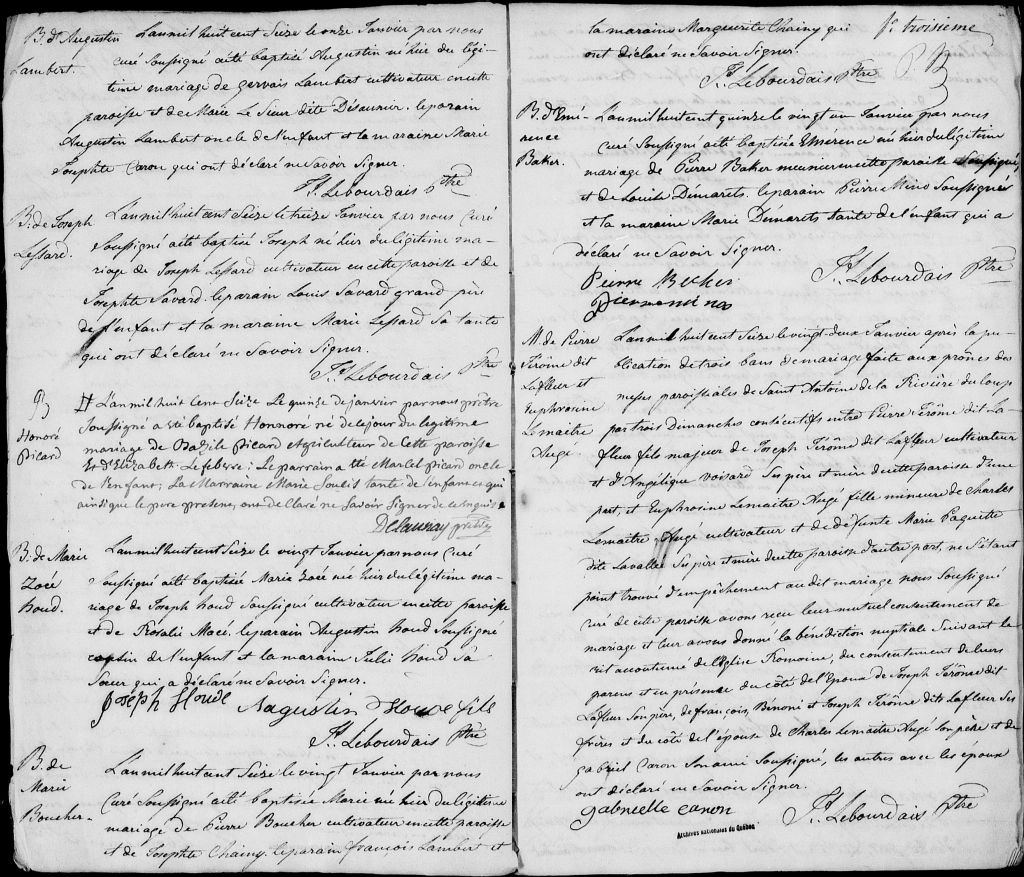 B. d'Augustin
Lambert.
L'an mil huit cent Seize le onze Janvier par nous
curé Soussigné a été baptisé Augustin né hier du légi-
time mariage de gervais Lambert cultivateur en cette
paroisse et de Marie Le Sieur dète Désaunir. le parain
Augustin Lambert oncle de l'enfant et la maraine Marie
Josephte Caron qui ont déclaré ne Savoir Signer.
Ls. Lebourdais Ptre
B. de Joseph
Lessard.
L'an mil huit cent Seize le treize Janvier par nous Curé
Soussigné a été baptisé Joseph né hier du légitime ma-
riage de Joseph Lessard cultivateur en cette paroisse et de
Josephte Savard. le parain Louis Savard grand père
de l'enfant et la maraine Marie Lessard Sa tante
qui ont déclaré ne Savoir Signer.
Ls. Lebourdais Ptre
B
Honoré
Picard
L'an mil huit Cent Seize Le quinze de janvier par nous prêtre
Soussigné a été baptisé Honnoré né de le jour du legitime
mariage de Bazile Picard Agriculteur de Cette paroisse
Et d'Elizabeth Lefebvre : Le parrain a été Marcel picard oncle
de l'enfant, La Marraine Marie Soulis tante de l'enfant ce qui
ainsi que le pere present, ont de Claré ne Savoir Signer de ce enquis.
Delaunay prêtre
B. de Marie
Zoée
houd.
L'an mil huit cent Seize le vingt Janvier par nous Curé
Soussigné a été baptisée Marie Zoée née hier du légitime ma-
riage de Joseph houd Soussigné cultivateur en cette paroisse
et de Rosalie Macé. le parain Augustin houd Soussigné
cousin de l'enfant et la maraine Julie houd Sa
Soeur qui a déclaré ne Savoir Signer.
Joseph Houde Augustin Houde fils
Ls. Lebourdais Ptre
B. de
Marie
Boucher.
L'an mil huit cent Seize le vingt Janvier par nous
Curé Soussigné a été baptisée Marie née hier du légitime
mariage de Pierre Boucher cultivateur en cette paroisse
et de Josephte Chainy. le parain françois Lambert et
la maraine Marguerite Chainy qui
ont déclaré ne Savoir Signer.
fe. troisieme
Ls. Lebourdais Ptre
B. d'Emé-
rence
Baker.
L'an mil huit cent quinze le vingt un Janvier par nous
curé Soussigné a été baptisée Emérence née hier du légitime
mariage de Pierre Baker meunier en cette paroisse Soussigné,
et de Louise Démarets. le parain Pierre Mino Soussigné
et la maraine Marie Démarets tante de l'enfant qui a
déclaré ne Savoir Signer.
Pierre Becker
Ls. Lebourdais Ptre
M. de Pierre
Jérôme dit
Lafleur et
Euphrosine
Lemaitre
Augé.
L'an mil huit cent Seize le vingt-deux Janvier après la pu-
blication de trois bans de mariage faite aux prônes des
messes paroissiales de Saint Antoine de la Rivière du loup
par trois Dimanches consécutifs entre Pierre Jérôme dit La-
fleur fils majeur de Joseph Jérôme dit Lafleur cultivateur
et d'Angélique Voisard Ses père et mère de cette paroisse d'une
part, et Euphrosine Lemaitre Augé fille mineure de Charles
Lemaitre Augé cultivateur et de défunte Marie Paquette
dite Lavallée Ses père et mère de cette paroisse d'autre part, ne S'étant
point trouvé d'empêchement au dit mariage nous Soussigné
curé de cette paroisse avons reçu leur mutuel consentement de
mariage et leur avons donné la bénédiction nuptiale Suivant le
rit accoutumé de l'Eglise Romaine, du consentement de leurs
parens et en présence du côté de l'époux de Joseph Jérôme dit
Lafleur Son père, de françois, Benoni et Joseph Jérôme dits Lafleur Ses
frères et du côté de l'épouse de Charles Lemaitre Augé Son père et de
gabriel Caron Son ami Soussigné, les autres avec les époux
ont déclaré ne Savoir Signer.
gabrielle caron
Ls. Lebourdais Ptre
Archives nationales du Québec